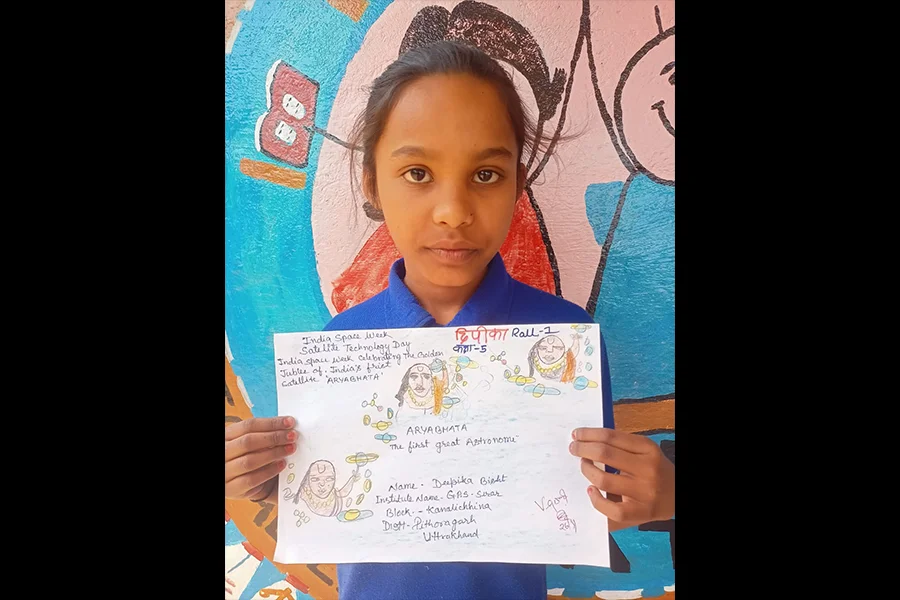 India Space Week
Satellite Technology Day
India space week celebrating the Golden
Jublee of. India's frist
Satellite 'ARYABHATA'
दिपीका Roll-1
कक्षा-5
ARYABHATA
The first great Astronome
Name - Deepika Bisht
Institute Name - GPS - Serar
Block - - Kanalichhina
Distt - Pithoragarh
Uttrakhand